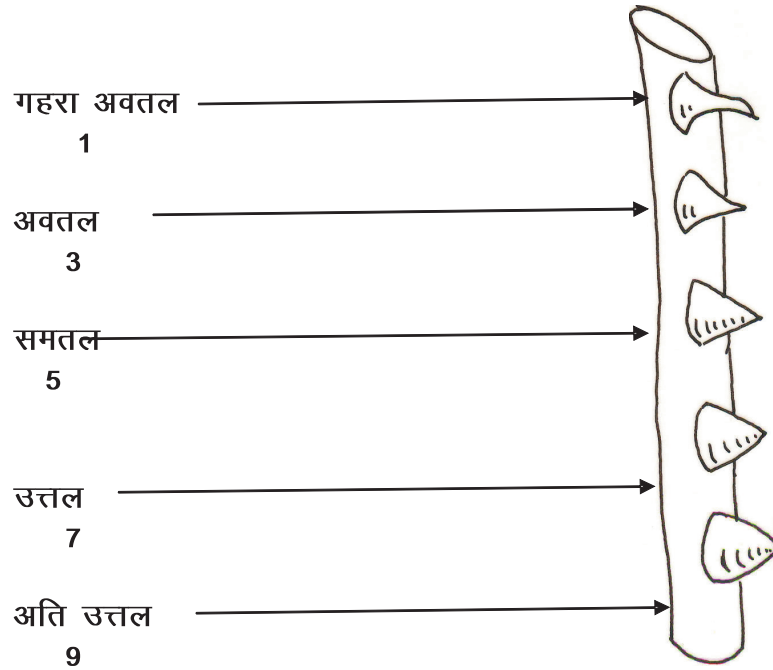 गहरा अवतल
1
अवतल
3
समतल
5
उत्तल
7
अति उत्तल
9